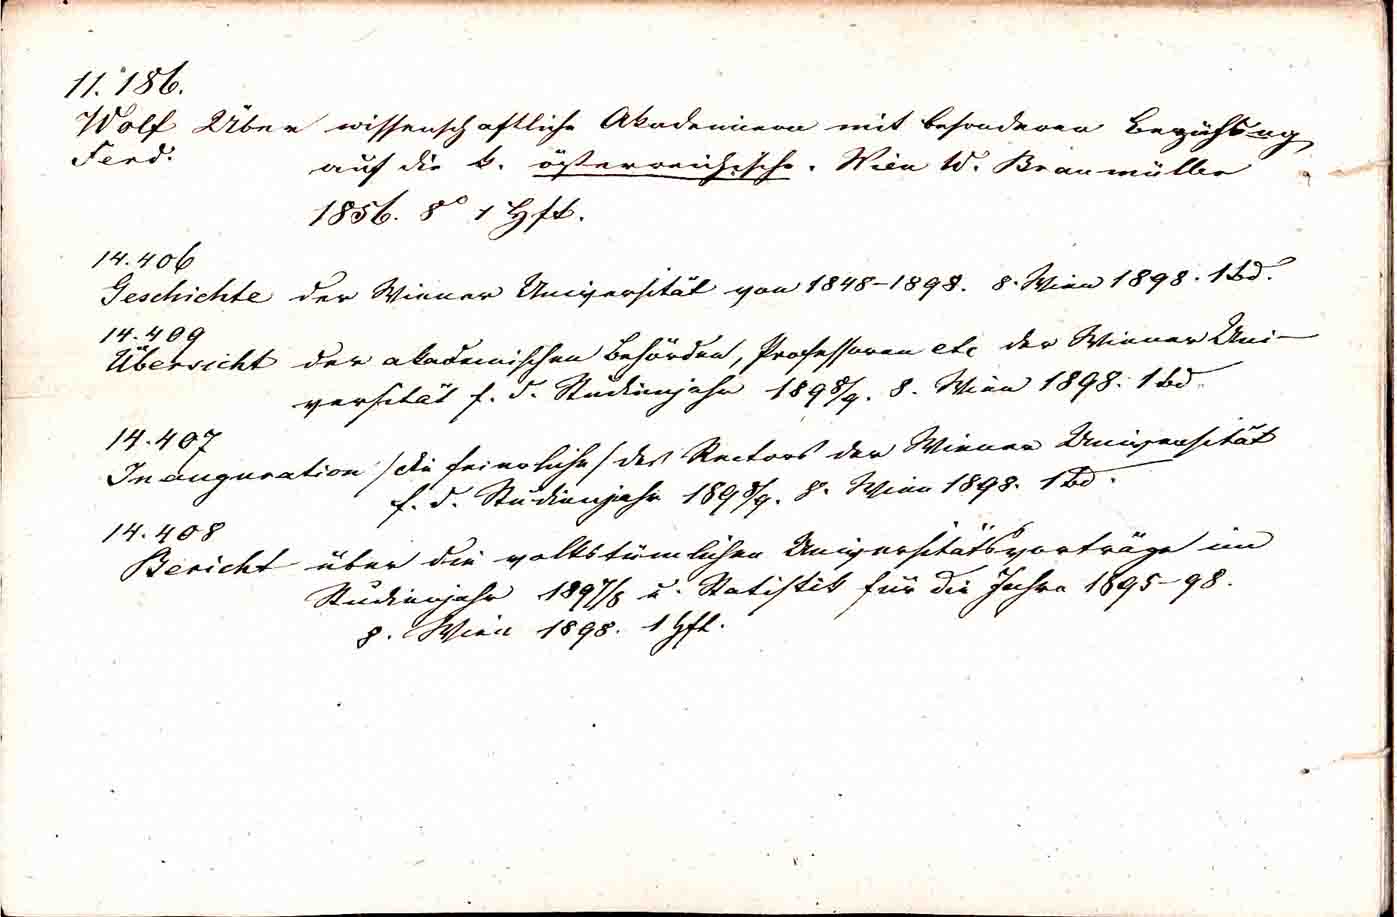 11.186.
Wolf Über wissenschaftliche Akademieen mit besonderer Beziehung
Ferd. auf die k. österreichische. Wien W. Braumüller
1856. 8° 1 Hft.
14.406
Geschichte der Wiener Universität von 1848-1898. 8. Wien 1898. 1 Bd.
14.409
Übersicht der akademischen Behörden, Professoren etc der Wiener Uni-
versität f. d. Studienjahr 1898/9. 8. Wien 1898. 1 Bd.
14.407
Inauguration /die feierliche/ des Rectors der Wiener Universität
f. d. Studienjahr 1898/9. 8. Wien 1898. 1 Bd.
14.408
Bericht über die volkstümlichen Universitätsvorträge im
Studienjahr 1897/8 u. Statistik für die Jahre 1895-98.
8. Wien 1898. 1 Hft.